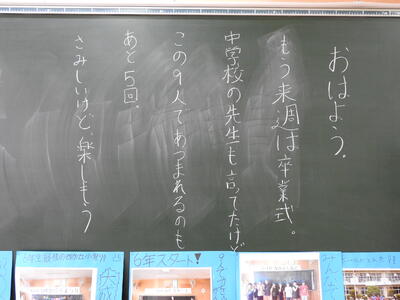 おはよう。
もう来週は卒業式。
中学校の先生も言ってたけど
この9人であつまれるのも
あと5回。
さみしいけど、楽しもう
6年スタート!